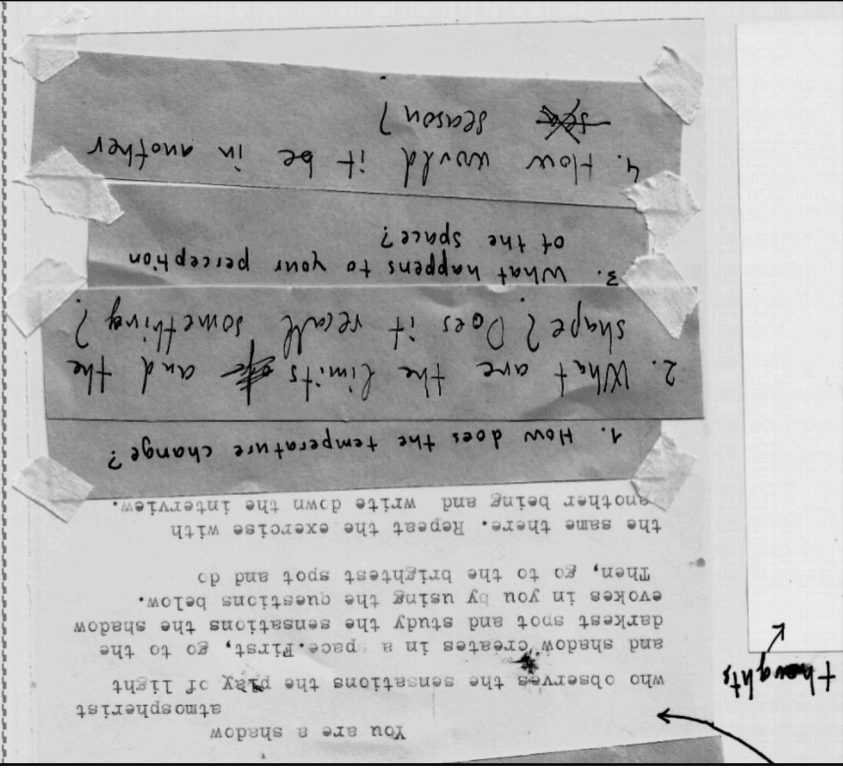 You are a shadow
atmospherist
who observes the sensations the play of light
and shadow creates in a space.First, go to the
darkest spot and study the sensations the shadow
evokes in you by using the questions below.
Then, go to the brightest spot and do
the same there. Repeat the exercise with
another being and write down the interview.
1. How does the temperature change?
2. What are the limits and the
shape? Does it recall something?
3. What happens to your perception
of the space?
4. How would it be in another
season?
thoughts